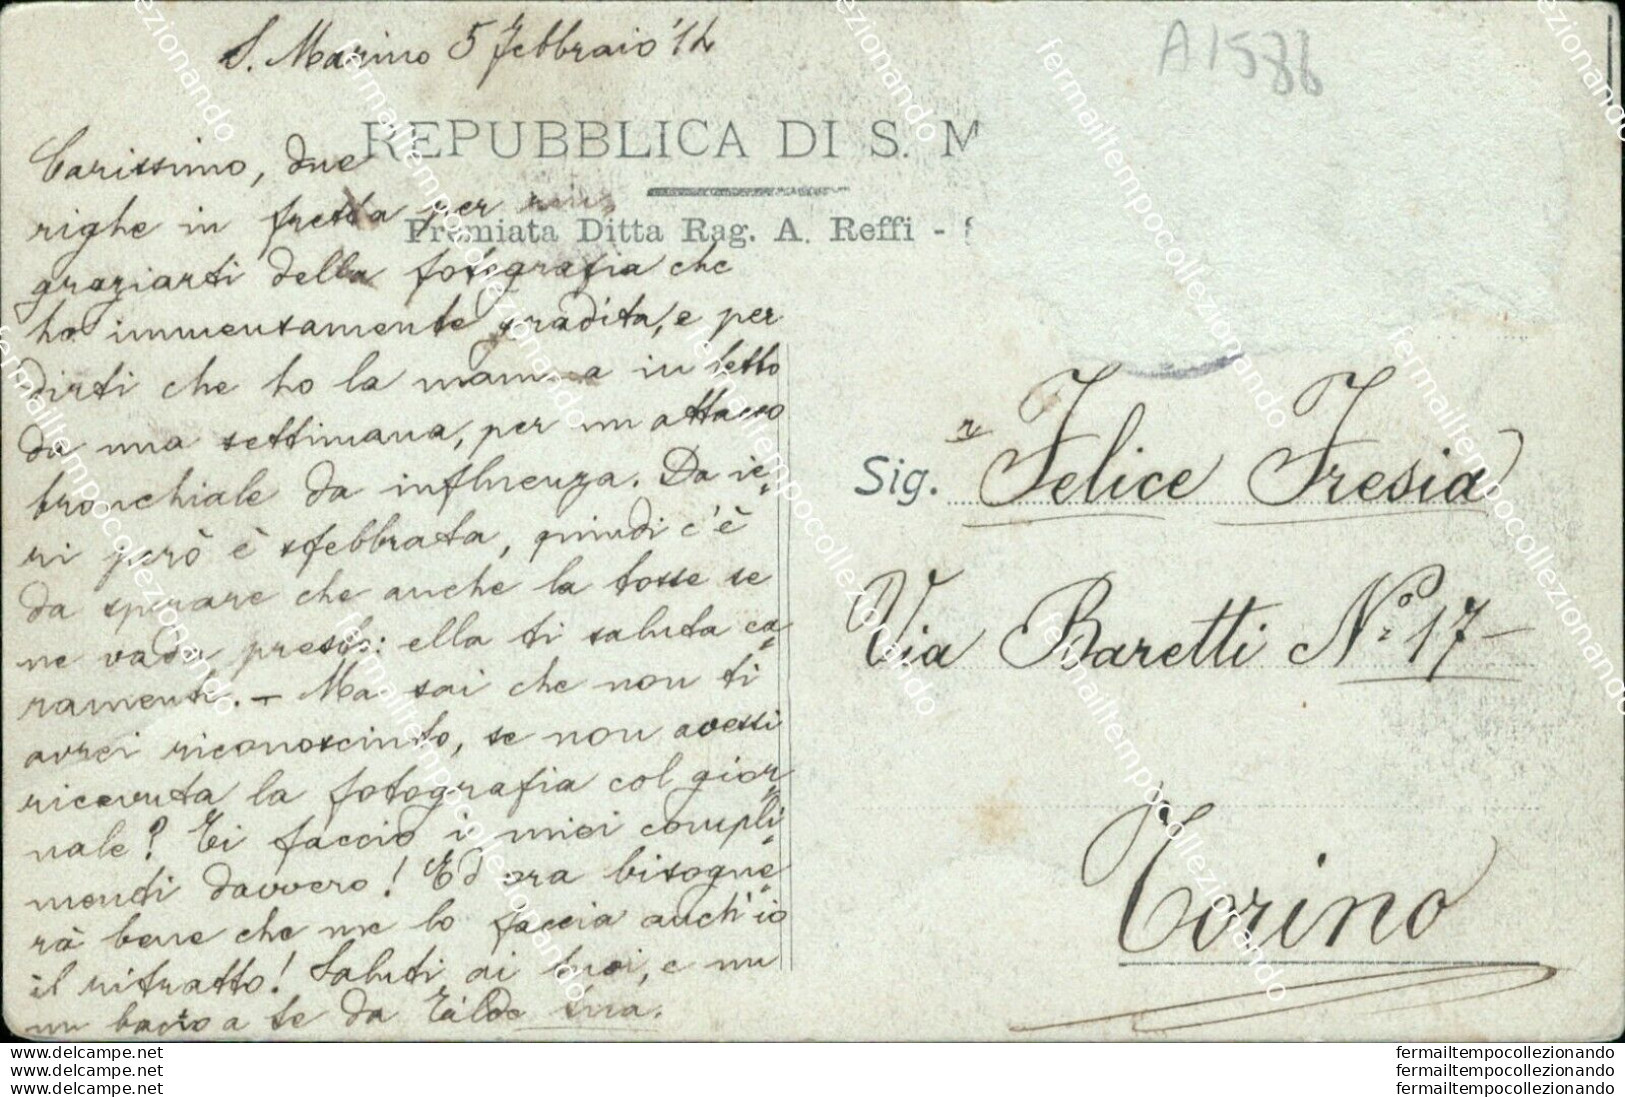 S. Marino 5 Febbraio '14
A1586
REPUBBLICA DI S. M
Premiata Ditta Rag. A. Reffi -
Carissimo, due
righe in fretta per rin
graziarti della fotografia che
ho immensamente gradita, e per
dirti che ho la mamma in letto
da una settimana, per un attacco
bronchiale da influenza. Da ie-
ri però è sfebbrata, quindi c'è
da sperare che anche la tosse se
ne vada presto: ella ti saluta ca-
ramente. - Ma sai che non ti
avrei riconosciuto, se non avessi
ricevuta la fotografia col gior-
nale? Ti faccio i miei compli-
menti davvero! Ed ora bisogne-
rà bene che me lo faccia anch'io
il ritratto! Saluti ai tuoi, e un
bacio a te da tua.
Sig. r Felice Fresia
Via Baretti No. 17-
Torino
www.delcampe.net
www.delcampe.net
www.delcampe.net
fermailtempocollezionando
fermailtempocollezionando
fermailtempocollezionando